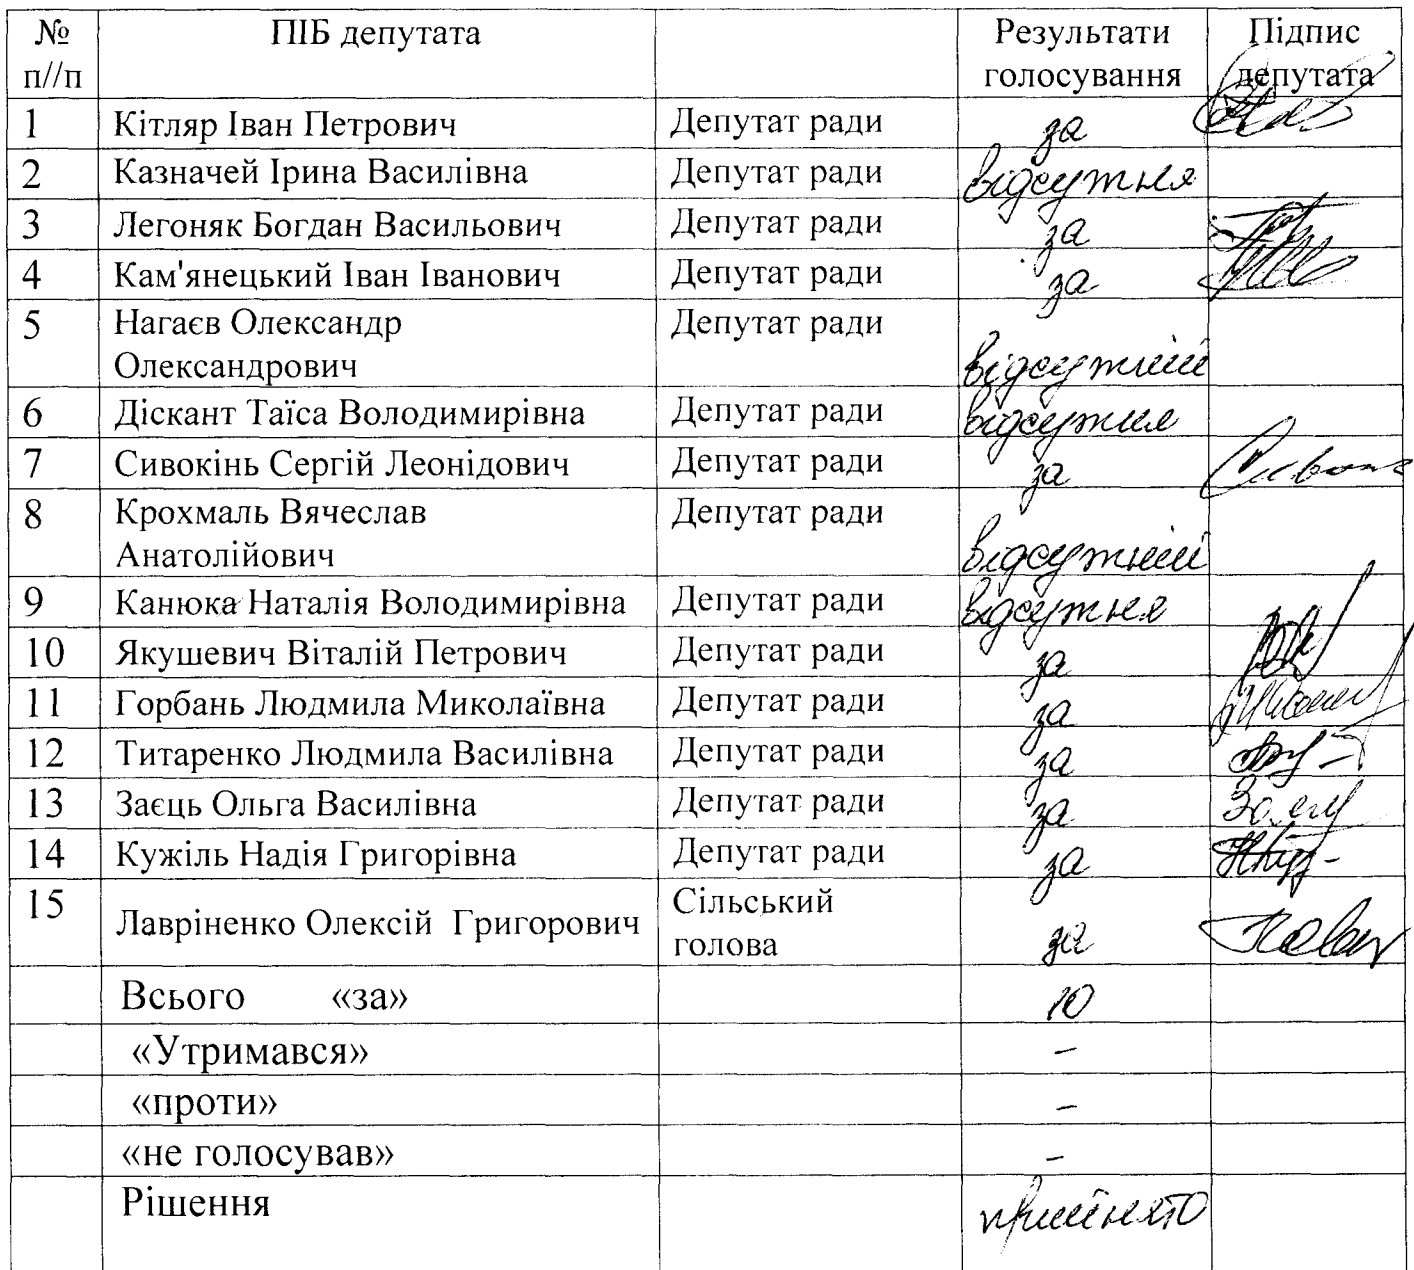 № ПІБ депутата Результати Підпис
п//п голосування депутата
1 Кітляр Іван Петрович Депутат ради за
2 Казначей Ірина Василівна Депутат ради відсутня
3 Легоняк Богдан Васильович Депутат ради за
4 Кам'янецький Іван Іванович Депутат ради за
5 Нагаєв Олександр Депутат ради
Олександрович відсутній
6 Діскант Таїса Володимирівна Депутат ради відсутня
7 Сивокінь Сергій Леонідович Депутат ради за
8 Крохмаль Вячеслав Депутат ради
Анатолійович відсутній
9 Канюка Наталія Володимирівна Депутат ради відсутня
10 Якушевич Віталій Петрович Депутат ради за
11 Горбань Людмила Миколаївна Депутат ради за
12 Титаренко Людмила Василівна Депутат ради за
13 Заєць Ольга Василівна Депутат ради за
14 Кужіль Надія Григорівна Депутат ради за
15 Лавріненко Олексій Григорович Сільський
голова за
Всього «за» 10
«Утримався» –
«проти» –
«не голосував» –
Рішення прийнято